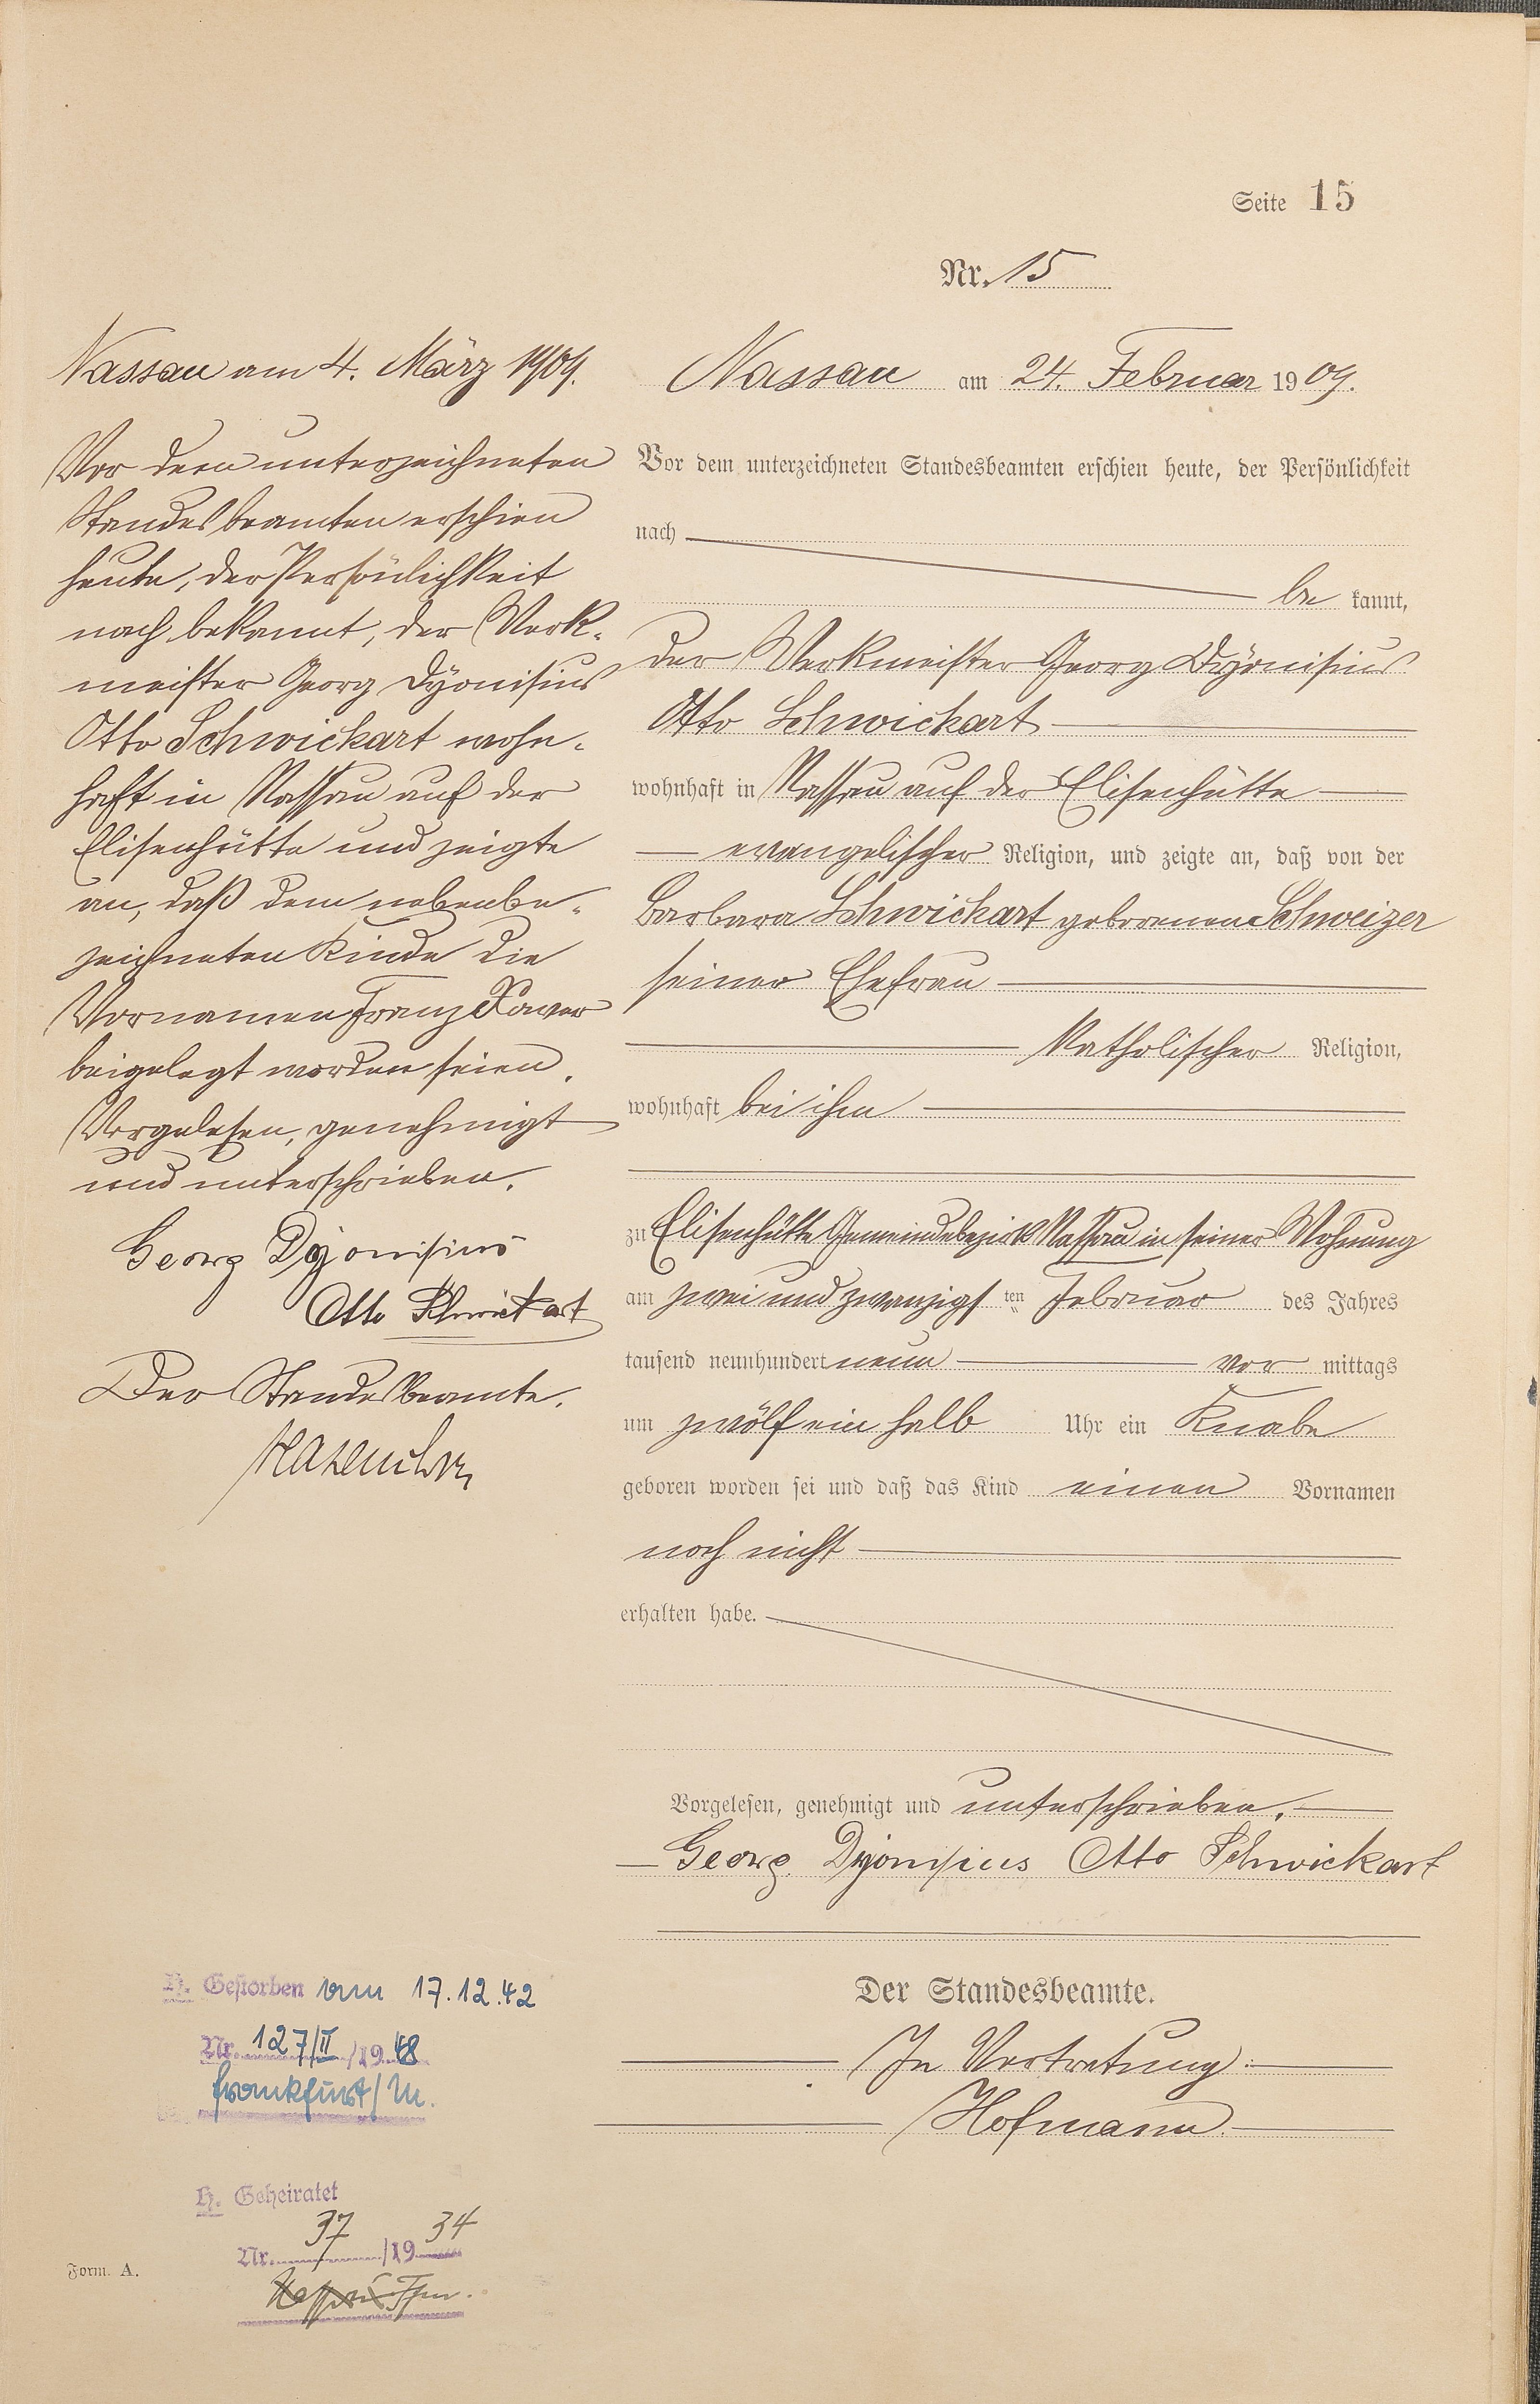 Seite 15
Nr. 15
Nassau am 4. März 1909.
Vor dem unterzeichneten
Standesbeamten erschien
heute, der Persönlichkeit
nach bekannt, der Werk-
meister Georg Dyonisius
Otto Schwickart wohn-
haft in Nassau auf der
Elisenhütte und zeigte
an, daß dem nebenbe-
zeichneten Kinde die
Vornamen Franz Xaver
beigelegt worden seien.
Vorgelesen, genehmigt
und unterschrieben.
Georg Dyonisius
Otto Schwickart
Der Standesbeamte.
Nassau am 24. Februar 1909.
Vor dem unterzeichneten Standesbeamten erschien heute, der Persönlichkeit
nach
be kannt,
der Werkmeister Georg Dyonisius
Otto Schwickart
wohnhaft in Nassau auf der Elisenhütte
evangelischer Religion, und zeigte an, daß von der
Barbara Schwickart geborenen Schweizer
seiner Ehefrau
katholischer Religion,
wohnhaft bei ihm
zu Elisenhütte Gemeindebezirk Nassau in seiner Wohnung
am zwei und zwanzigs ten Februar des Jahres
tausend neunhundert neun vor mittags
um zwölf ein halb Uhr ein Knabe
geboren worden sei und daß das Kind einen Vornamen
noch nicht
erhalten habe.
Vorgelesen, genehmigt und unterschrieben.
Georg Dyonisius Otto Schwickart
Der Standesbeamte.
In Vertretung:
Hofmann.
H. Gestorben am 17.12.42
Nr. 127/II /19 48
Frankfurt/M.
H. Geheiratet
Nr. 37 /19 34
Form. A.